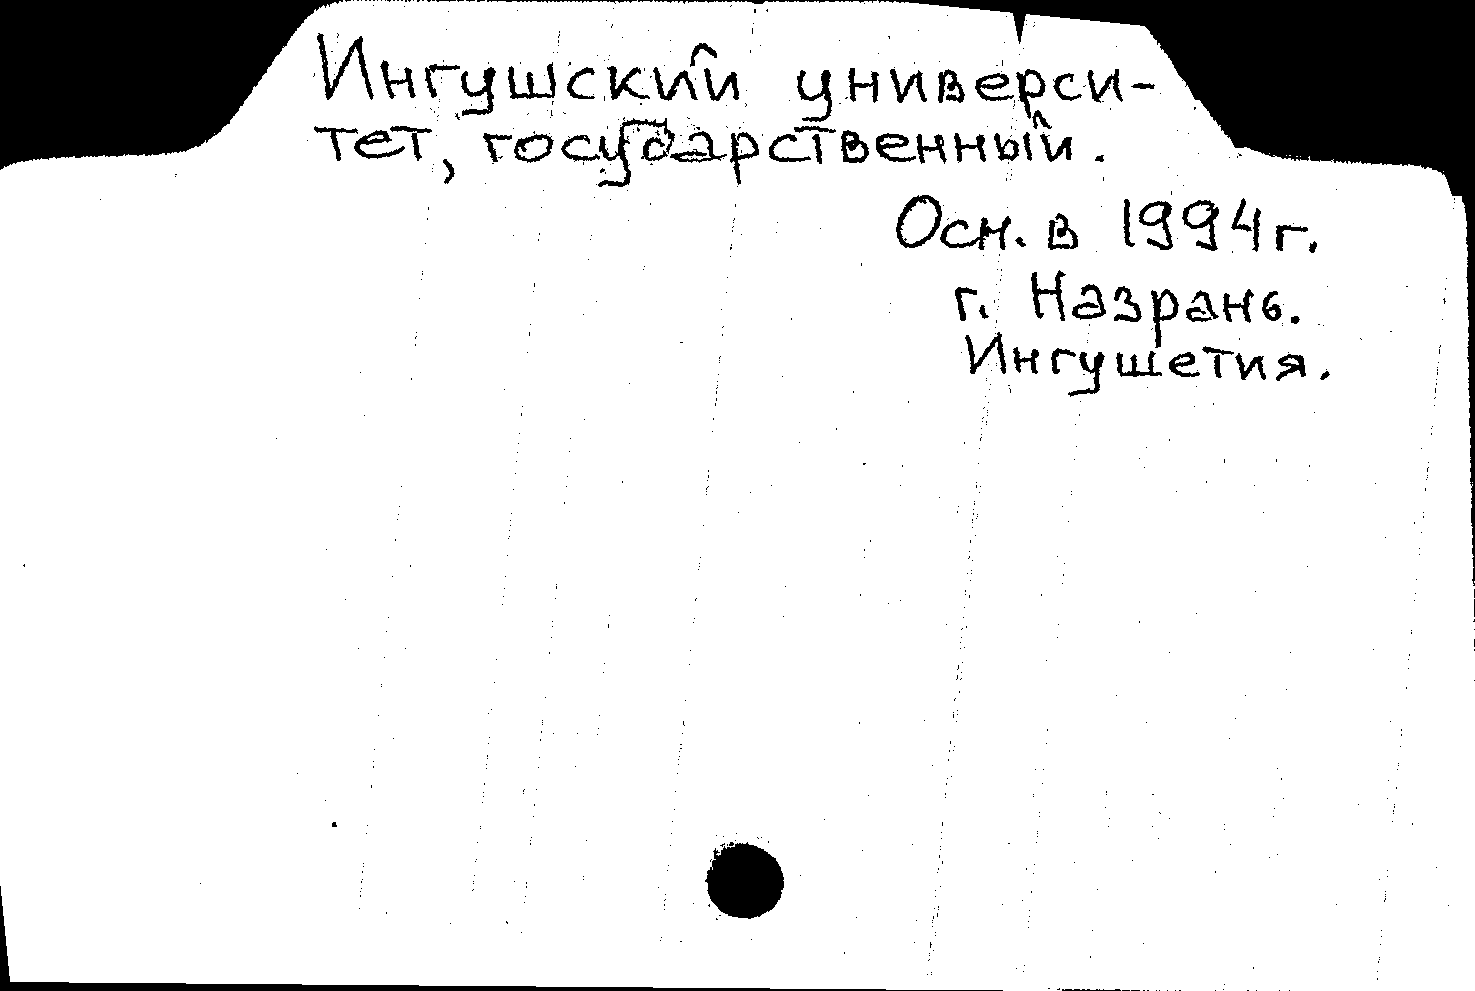 Ингушский универси-
тет, государственный.
Осн. в 1994г.
г. Назрань.
Ингушетия.